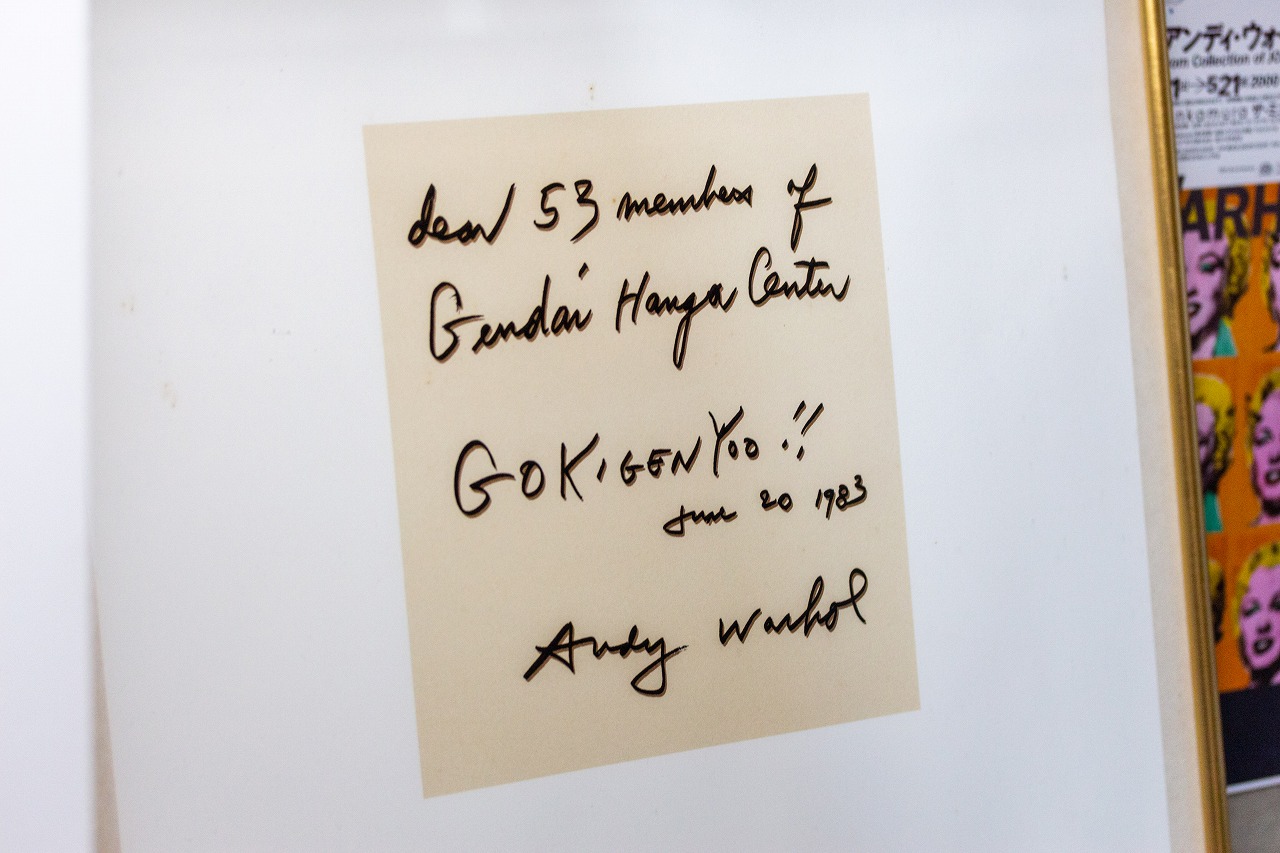 dear 53 members of
Gendai Hanga Center
GOKIGENYOO!!
June 20 1983
Andy Warhol
アンディ・ウォ
om Collection of
521
2000
nkamura ザ・ミ
ARH